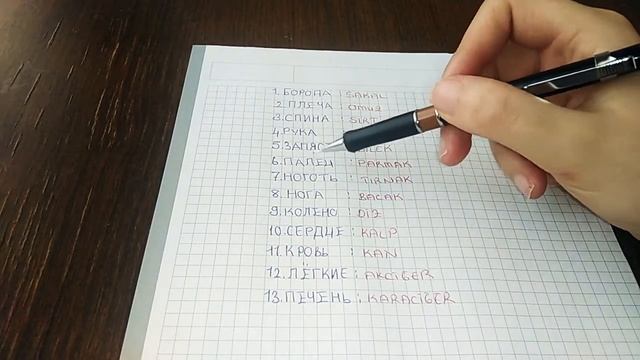 1. БОРОДА : SAKAL
2. ПЛЕЧА : OMUZ
3. СПИНА : SIRT
4. РУКА
5. ЗАПЯС
6. ПАЛЕЦ : PARMAK
7. НОГОТЬ : TIRNAK
8. НОГА : BACAK
9. КОЛЕНО : DIZ
10. СЕРДЦЕ : KALP
11. КРОВЬ : KAN
12. ЛЁГКИЕ : AKCİĞER
13. ПЕЧЕНЬ : KARACİĞER